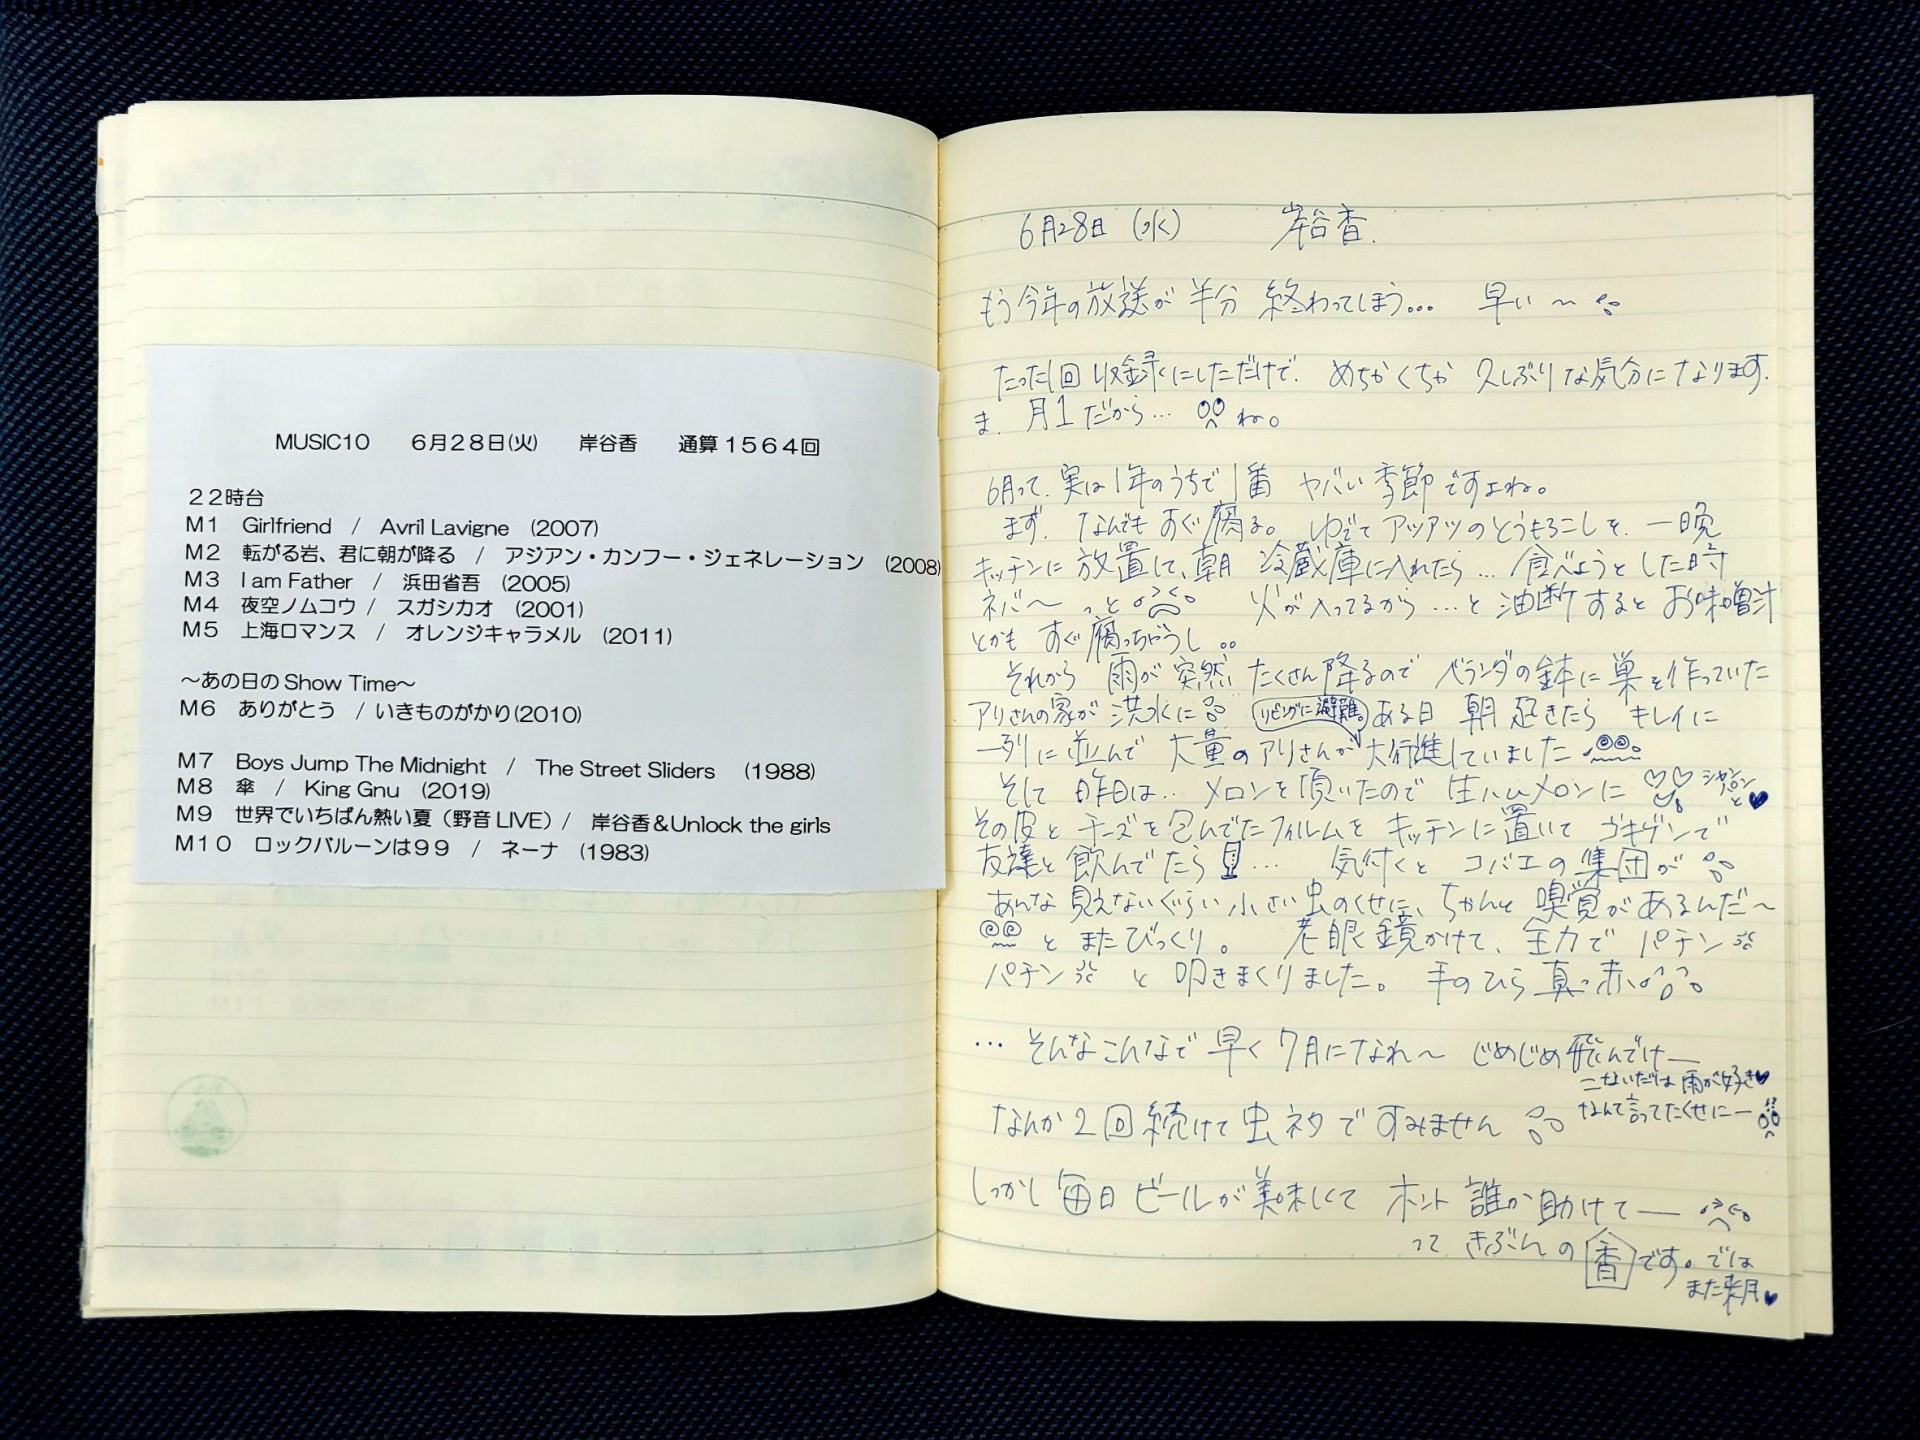 MUSIC10　6月28日(火)　岸谷香　通算1564回
22時台
M1　Girlfriend　/　Avril Lavigne　(2007)
M2　転がる岩、君に朝が降る　/　アジアン・カンフー・ジェネレーション　(2008)
M3　I am Father　/　浜田省吾　(2005)
M4　夜空ノムコウ /　スガシカオ　(2001)
M5　上海ロマンス　/　オレンジキャラメル　(2011)
～あの日のShow Time～
M6　ありがとう　/ いきものがかり(2010)
M7　Boys Jump The Midnight　/　The Street Sliders　(1988)
M8　傘　/　King Gnu　(2019)
M9　世界でいちばん熱い夏（野音LIVE）/　岸谷香＆Unlock the girls
M10　ロックバルーンは99　/　ネーナ　(1983)
6月28日（水）　岸谷香.
もう今年の放送が 半分 終わってしまう… 早い～
たった1回収録にしただけで. めちゃくちゃ 久しぶりな気分になります.
ま. 月1だから… ね。
6月って. 実は1年のうちで1番 ヤバい季節ですよね。
まず. なんでも すぐ腐る。 ゆでて アツアツのとうもろこしを. 一晩
キッチンに 放置して、朝 冷蔵庫に入れたら… 食べようとした時
ネバ～っと 火が入ってるから…と 油断すると お味噌汁
とかも すぐ腐っちゃうし..
それから 雨が 突然 たくさん降るので ベランダの鉢に 巣を作っていた
アリさんの家が 洪水に リビングに避難。 ある日 朝 起きたら キレイに
一列に並んで 大量のアリさんが 大行進していました
そして 昨日は.. メロンを頂いたので 生ハムメロンに シャンパンと♥
その皮と チーズを包んでたフィルムを キッチンに置いて ゴキゲンで
友達と 飲んでたら … 気付くと コバエの集団が
あんな 見えないぐらい 小さい虫のくせに、ちゃんと 嗅覚があるんだ～
と またびっくり。 老眼鏡かけて、全力で パチン
パチン と 叩きまくりました。 手のひら 真っ赤
… そんなこんなで 早く 7月になれ～ じめじめ飛んでけー
こないだは 雨が好き♥
なんて言ってたくせにー
なんか 2回続けて 虫ネタで すみません
しっかし 毎日 ビールが美味しくて ホント 誰か助けてー
って きぶんの 香 です。では
また来月♥